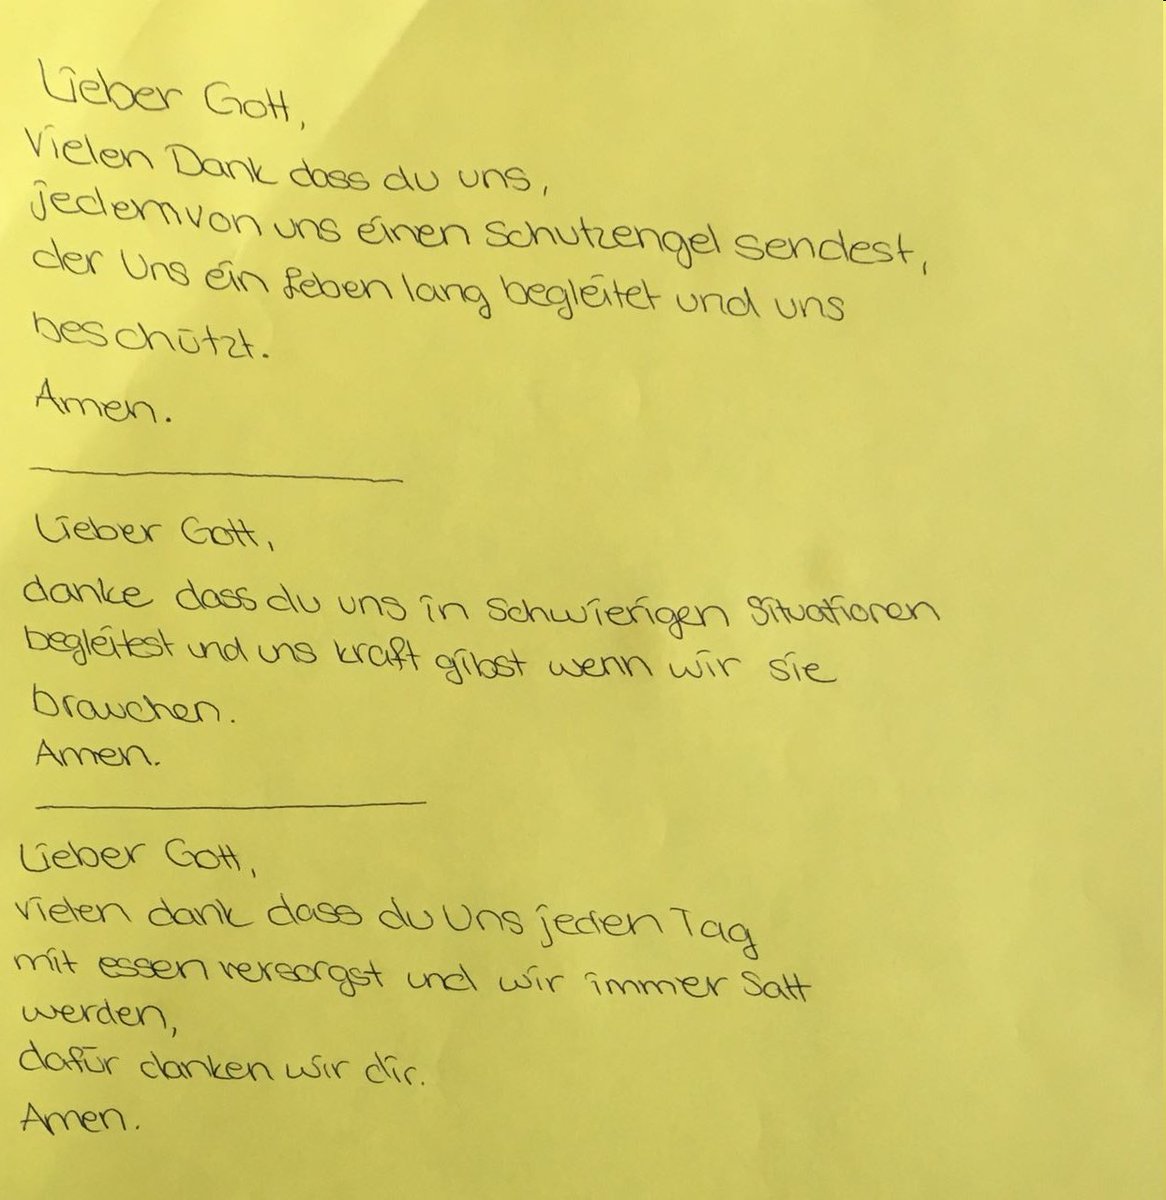 Lieber Gott,
Vielen Dank dass du uns,
jedem von uns einen Schutzengel sendest,
der Uns ein Leben lang begleitet und uns
beschützt.
Amen.
Lieber Gott,
danke dass du uns in Schwierigen Situationen
begleitest und uns kraft gibst wenn wir sie
brauchen.
Amen.
Lieber Gott,
vielen dank dass du Uns jeden Tag
mit essen versorgst und wir immer Satt
werden,
dafür danken wir dir.
Amen.